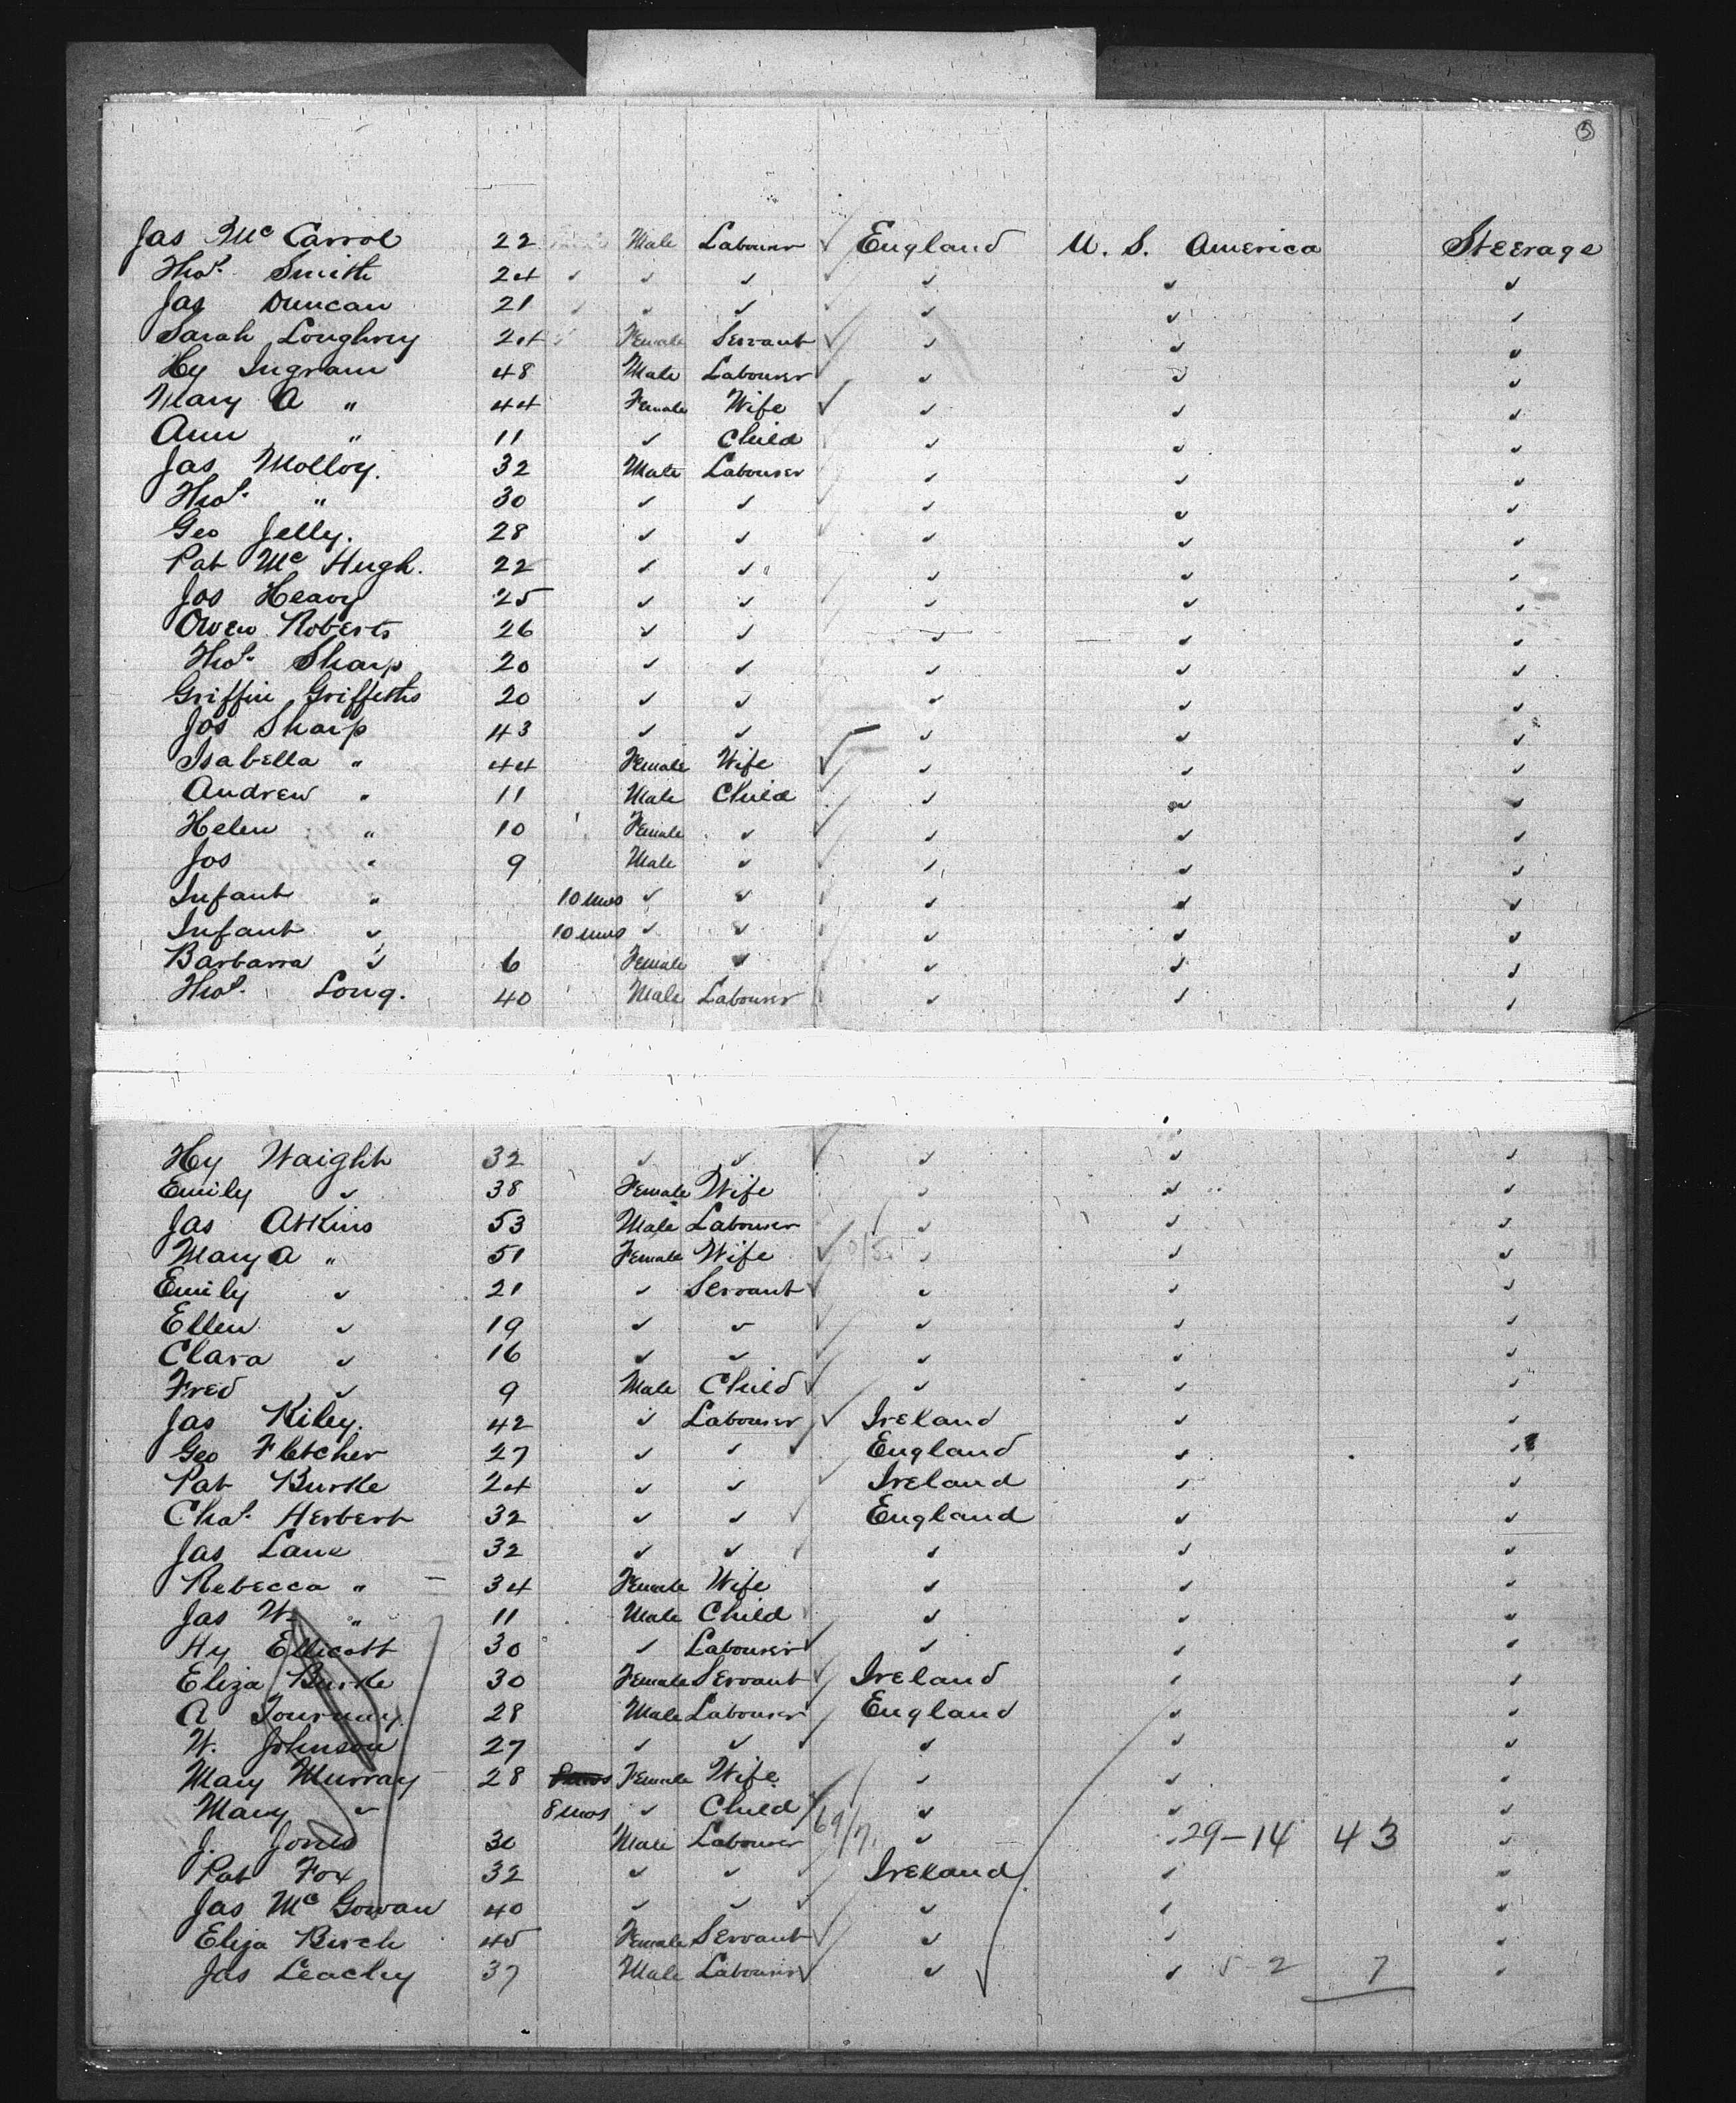 3
Jas McCarrol 22 Male Labourer ✓ England U. S. America Steerage
Thos. Smith 24 ✓ ✓ ✓ ✓ ✓ ✓
Jas Duncan 21 ✓ ✓ ✓ ✓ ✓ ✓
Sarah Loughrey 24 Female Servant ✓ ✓ ✓ ✓
Hy Ingram 48 Male Labourer ✓ ✓ ✓ ✓
Mary A " 44 Female Wife ✓ ✓ ✓ ✓
Ann " 11 ✓ Child ✓ ✓ ✓
Jas Molloy. 32 Male Labourer ✓ ✓ ✓
Thos. " 30 ✓ ✓ ✓ ✓ ✓
Geo Jelly. 28 ✓ ✓ ✓ ✓ ✓
Pat McHugh. 22 ✓ ✓ ✓ ✓ ✓
Jos Heavy 25 ✓ ✓ ✓ ✓ ✓
Owen Roberts 26 ✓ ✓ ✓ ✓ ✓
Thos. Sharp 20 ✓ ✓ ✓ ✓ ✓
Griffin Griffiths 20 ✓ ✓ ✓ ✓ ✓
Jos Sharp 43 ✓ ✓ ✓ ✓ ✓
Isabella " 44 Female Wife ✓ ✓ ✓ ✓
Andrew " 11 Male Child ✓ ✓ ✓
Helen " 10 Female ✓ ✓ ✓ ✓ ✓
Jos " 9 Male ✓ ✓ ✓ ✓
Infant " 10 mos ✓ ✓ ✓ ✓ ✓
Infant ✓ 10 mos ✓ ✓ ✓ ✓ ✓
Barbarra ✓ 6 Female ✓ ✓ ✓ ✓
Thos. Long. 40 Male Labourer ✓ ✓ ✓
Hy Waight 32 ✓ ✓ ✓ ✓ ✓ ✓
Emily ✓ 38 Female Wife ✓ ✓ ✓
Jas Atkins 53 Male Labourer ✓ ✓ ✓
Mary A " 51 Female Wife ✓ ✓ ✓ ✓
Emily ✓ 21 ✓ Servant ✓ ✓ ✓ ✓
Ellen ✓ 19 ✓ ✓ ✓ ✓ ✓ ✓
Clara ✓ 16 ✓ ✓ ✓ ✓ ✓ ✓
Fred ✓ 9 Male Child ✓ ✓ ✓ ✓
Jas Kiley. 42 ✓ Labourer ✓ Ireland ✓ ✓
Geo Fletcher 27 ✓ ✓ England ✓ ✓
Pat Burke 24 ✓ ✓ ✓ Ireland ✓ ✓
Chas. Herbert 32 ✓ ✓ ✓ England ✓ ✓
Jas Lane 32 ✓ ✓ ✓ ✓ ✓
Rebecca " 34 Female Wife ✓ ✓ ✓
Jas W. " 11 Male Child ✓ ✓ ✓
Hy Ellicott 30 ✓ Labourer ✓ ✓ ✓ ✓
Eliza Burke 30 Female Servant ✓ Ireland ✓ ✓
A Tournay. 28 Male Labourer ✓ England ✓ ✓
W. Johnson 27 ✓ ✓ ✓ ✓ ✓ ✓
Mary Murray 28 Female Wife ✓ ✓ ✓
Mary ✓ 8 mos ✓ Child ✓ ✓ ✓
J. Jones 30 Male Labourer 69/7. ✓ ✓ 29-14 43 ✓
Pat Fox 32 ✓ ✓ Ireland ✓ ✓
Jas McGowan 40 ✓ ✓ ✓ ✓ ✓ ✓
Eliza Birch 45 Female Servant ✓ ✓ ✓ ✓
Jas Leachy 37 Male Labourer ✓ ✓ ✓ 5-2 7 ✓